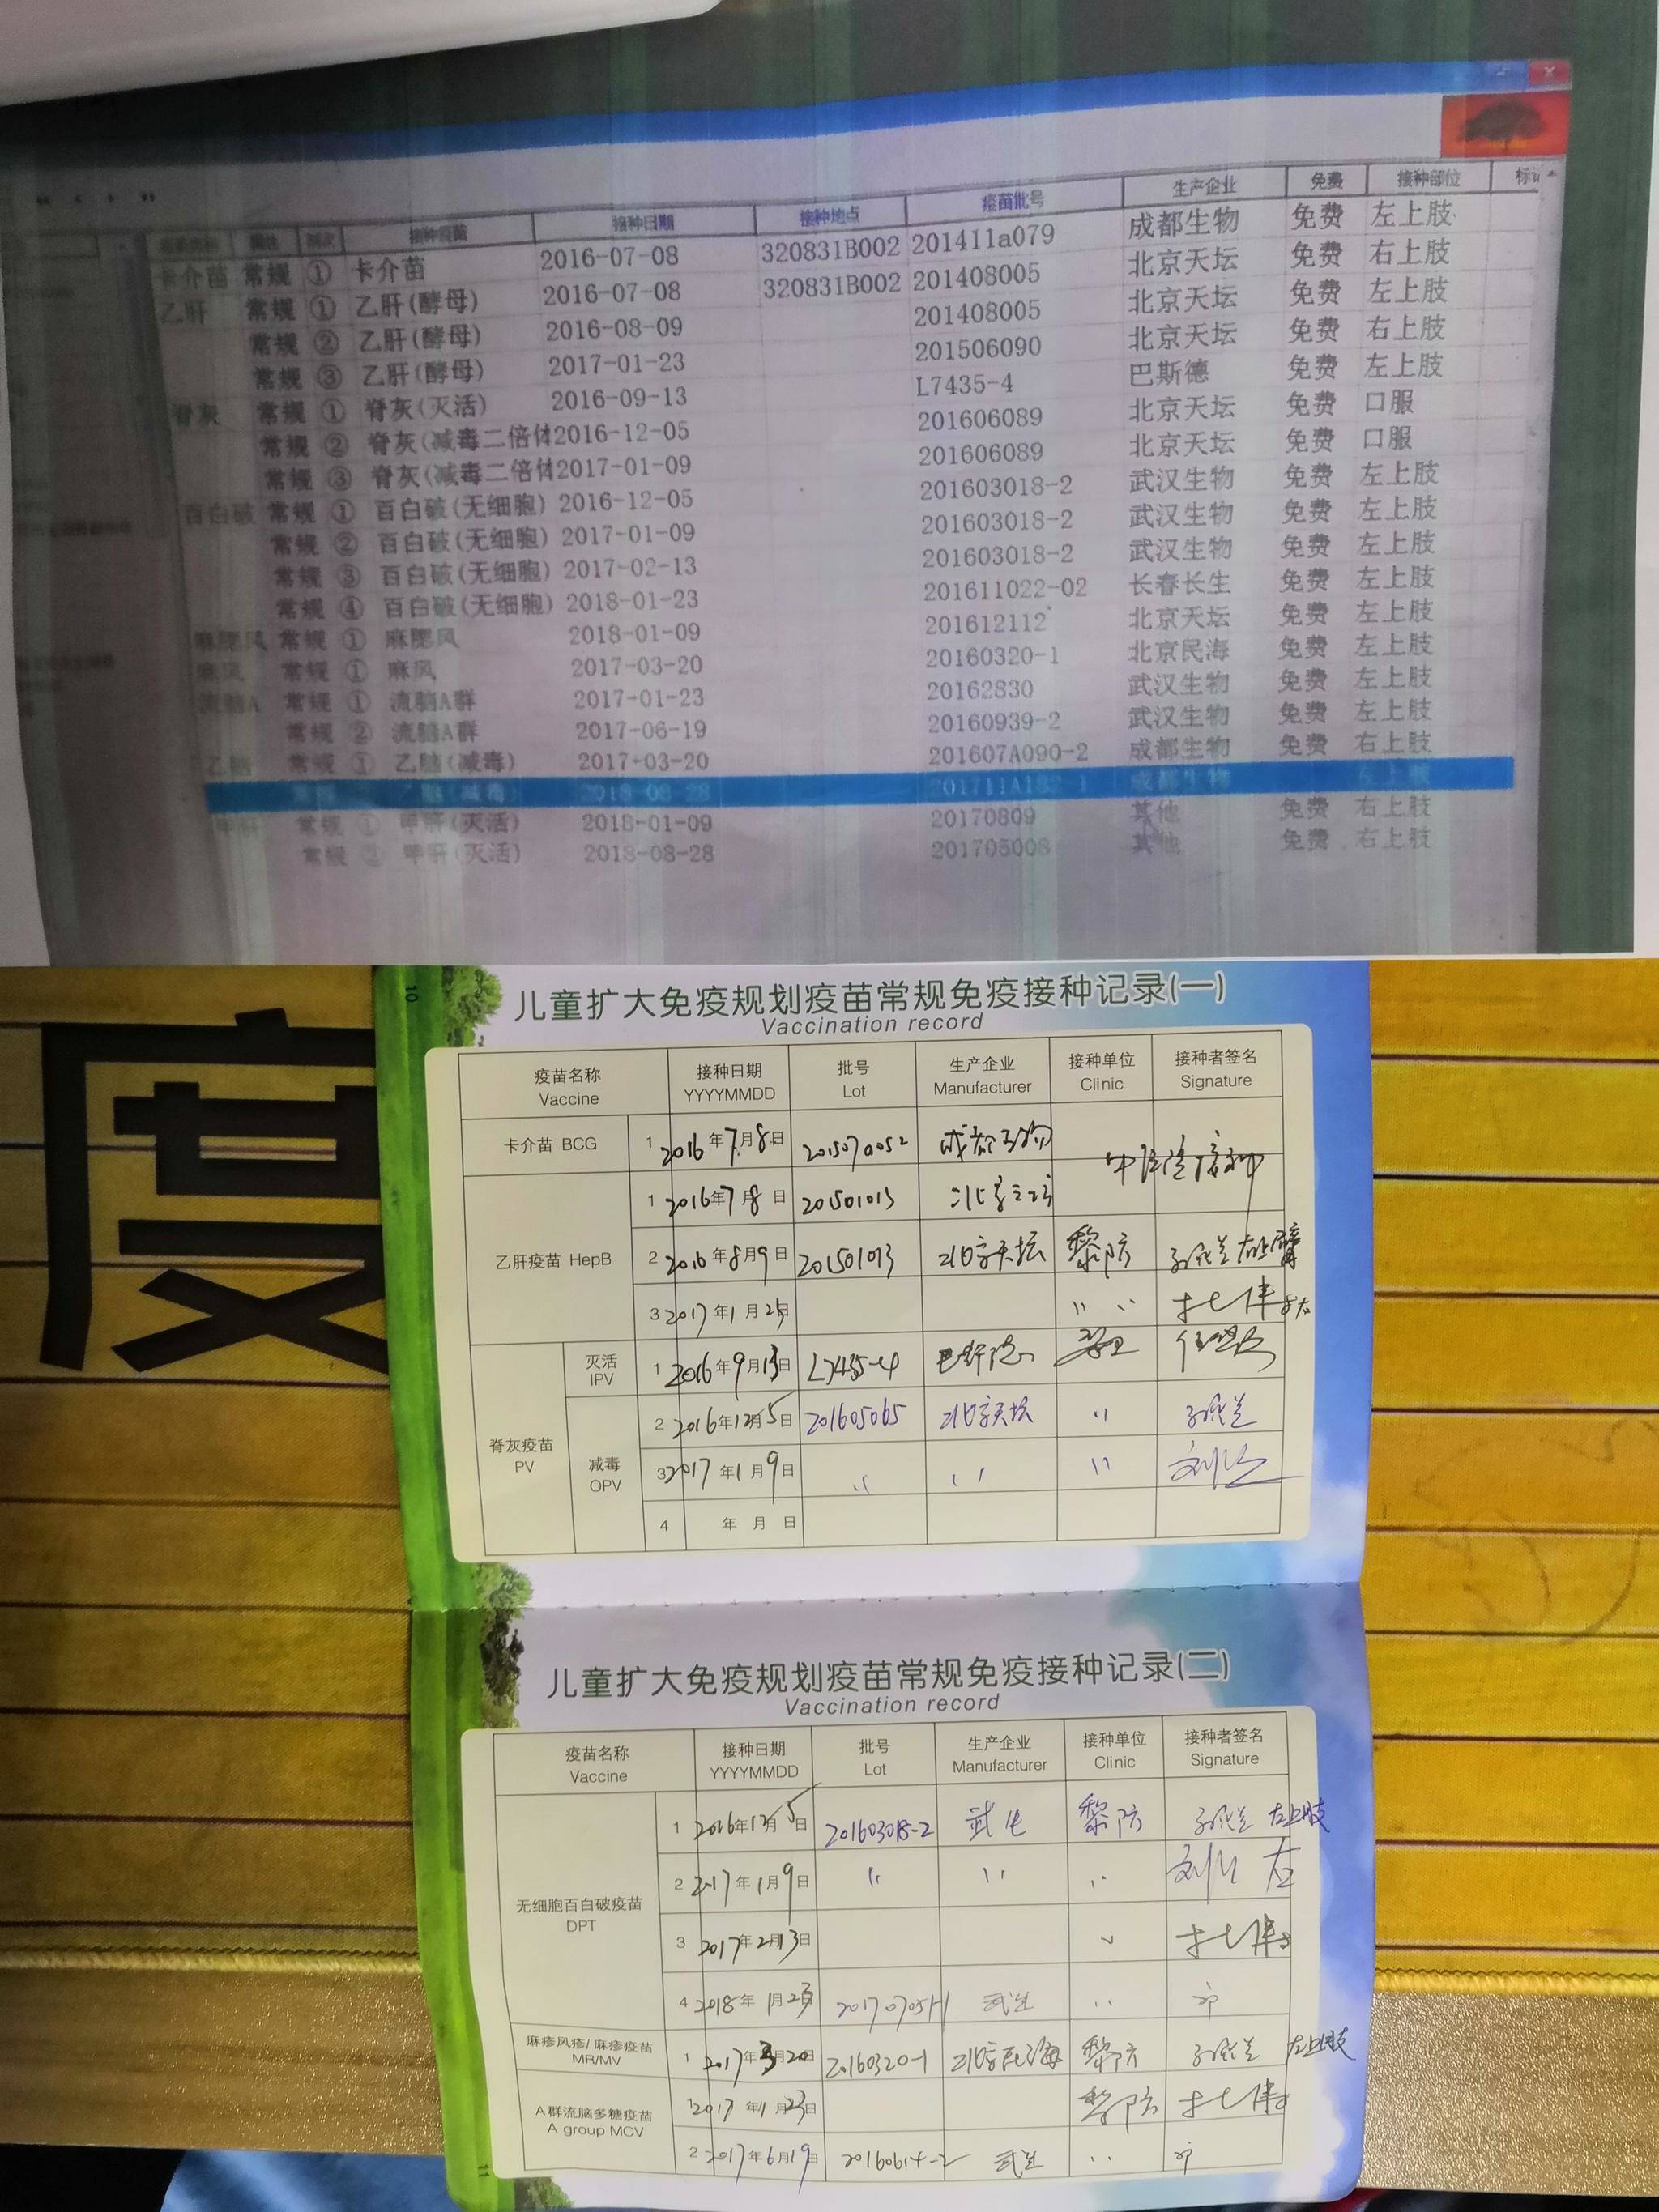 接种疫苗 接种日期 接种地点 疫苗批号 生产企业 免费 接种部位
卡介苗 常规 ① 卡介苗 2016-07-08 320831B002 201411a079 成都生物 免费 左上肢
乙肝 常规 ① 乙肝(酵母) 2016-07-08 320831B002 201408005 北京天坛 免费 右上肢
常规 ② 乙肝(酵母) 2016-08-09 201408005 北京天坛 免费 左上肢
常规 ③ 乙肝(酵母) 2017-01-23 201506090 北京天坛 免费 右上肢
脊灰 常规 ① 脊灰(灭活) 2016-09-13 L7435-4 巴斯德 免费 左上肢
常规 ② 脊灰(减毒二倍体 2016-12-05 201606089 北京天坛 免费 口服
常规 ③ 脊灰(减毒二倍体 2017-01-09 201606089 北京天坛 免费 口服
百白破 常规 ① 百白破(无细胞) 2016-12-05 201603018-2 武汉生物 免费 左上肢
常规 ② 百白破(无细胞) 2017-01-09 201603018-2 武汉生物 免费 左上肢
常规 ③ 百白破(无细胞) 2017-02-13 201603018-2 武汉生物 免费 左上肢
常规 ④ 百白破(无细胞) 2018-01-23 201611022-02 长春长生 免费 左上肢
麻腮风 常规 ① 麻腮风 2018-01-09 201612112 北京天坛 免费 左上肢
麻风 常规 ① 麻风 2017-03-20 20160320-1 北京民海 免费 左上肢
流脑A 常规 ① 流脑A群 2017-01-23 20162830 武汉生物 免费 左上肢
常规 ② 流脑A群 2017-06-19 20160939-2 武汉生物 免费 左上肢
乙脑 常规 ① 乙脑(减毒) 2017-03-20 201607A090-2 成都生物 免费 右上肢
常规 乙脑(减毒) 2018-08-28 成都生物 左上肢
甲肝 常规 ① 甲肝(灭活) 2018-01-09 20170809 其他 免费 右上肢
常规 ② 甲肝(灭活) 2018-08-28 201705008 其他 免费 右上肢
度
10
儿童扩大免疫规划疫苗常规免疫接种记录(一)
Vaccination record
疫苗名称 接种日期 批号 生产企业 接种单位 接种者签名
Vaccine YYYYMMDD Lot Manufacturer Clinic Signature
卡介苗 BCG 1 2016年7月8日 成都生物
1 2016年7月8日 201501013
乙肝疫苗 HepB 2 2016年8月9日 201501013 北京天坛 黎防
3 2017年1月23日 〃 〃
灭活 IPV 1 2016年9月13日 L7435-4 巴斯德
脊灰疫苗 PV
减毒 OPV
2 2016年12月5日 201605065 北京天坛 〃
3 2017年1月9日 〃 〃 〃
4 年 月 日
儿童扩大免疫规划疫苗常规免疫接种记录(二)
Vaccination record
疫苗名称 接种日期 批号 生产企业 接种单位 接种者签名
Vaccine YYYYMMDD Lot Manufacturer Clinic Signature
无细胞百白破疫苗
DPT
1 2016年12月5日 201603018-2 武生 黎防 左上肢
2 2017年1月9日 〃 〃 〃 左
3 2017年2月13日
4 2018年1月23日 武生 〃
麻疹风疹/麻疹疫苗
MR/MV
1 2017年3月20日 20160320-1 北京民海 黎防 左上肢
A群流脑多糖疫苗
A group MCV
1 2017年1月23日 黎防
2 2017年6月19日 20160614-2 武生 〃
11